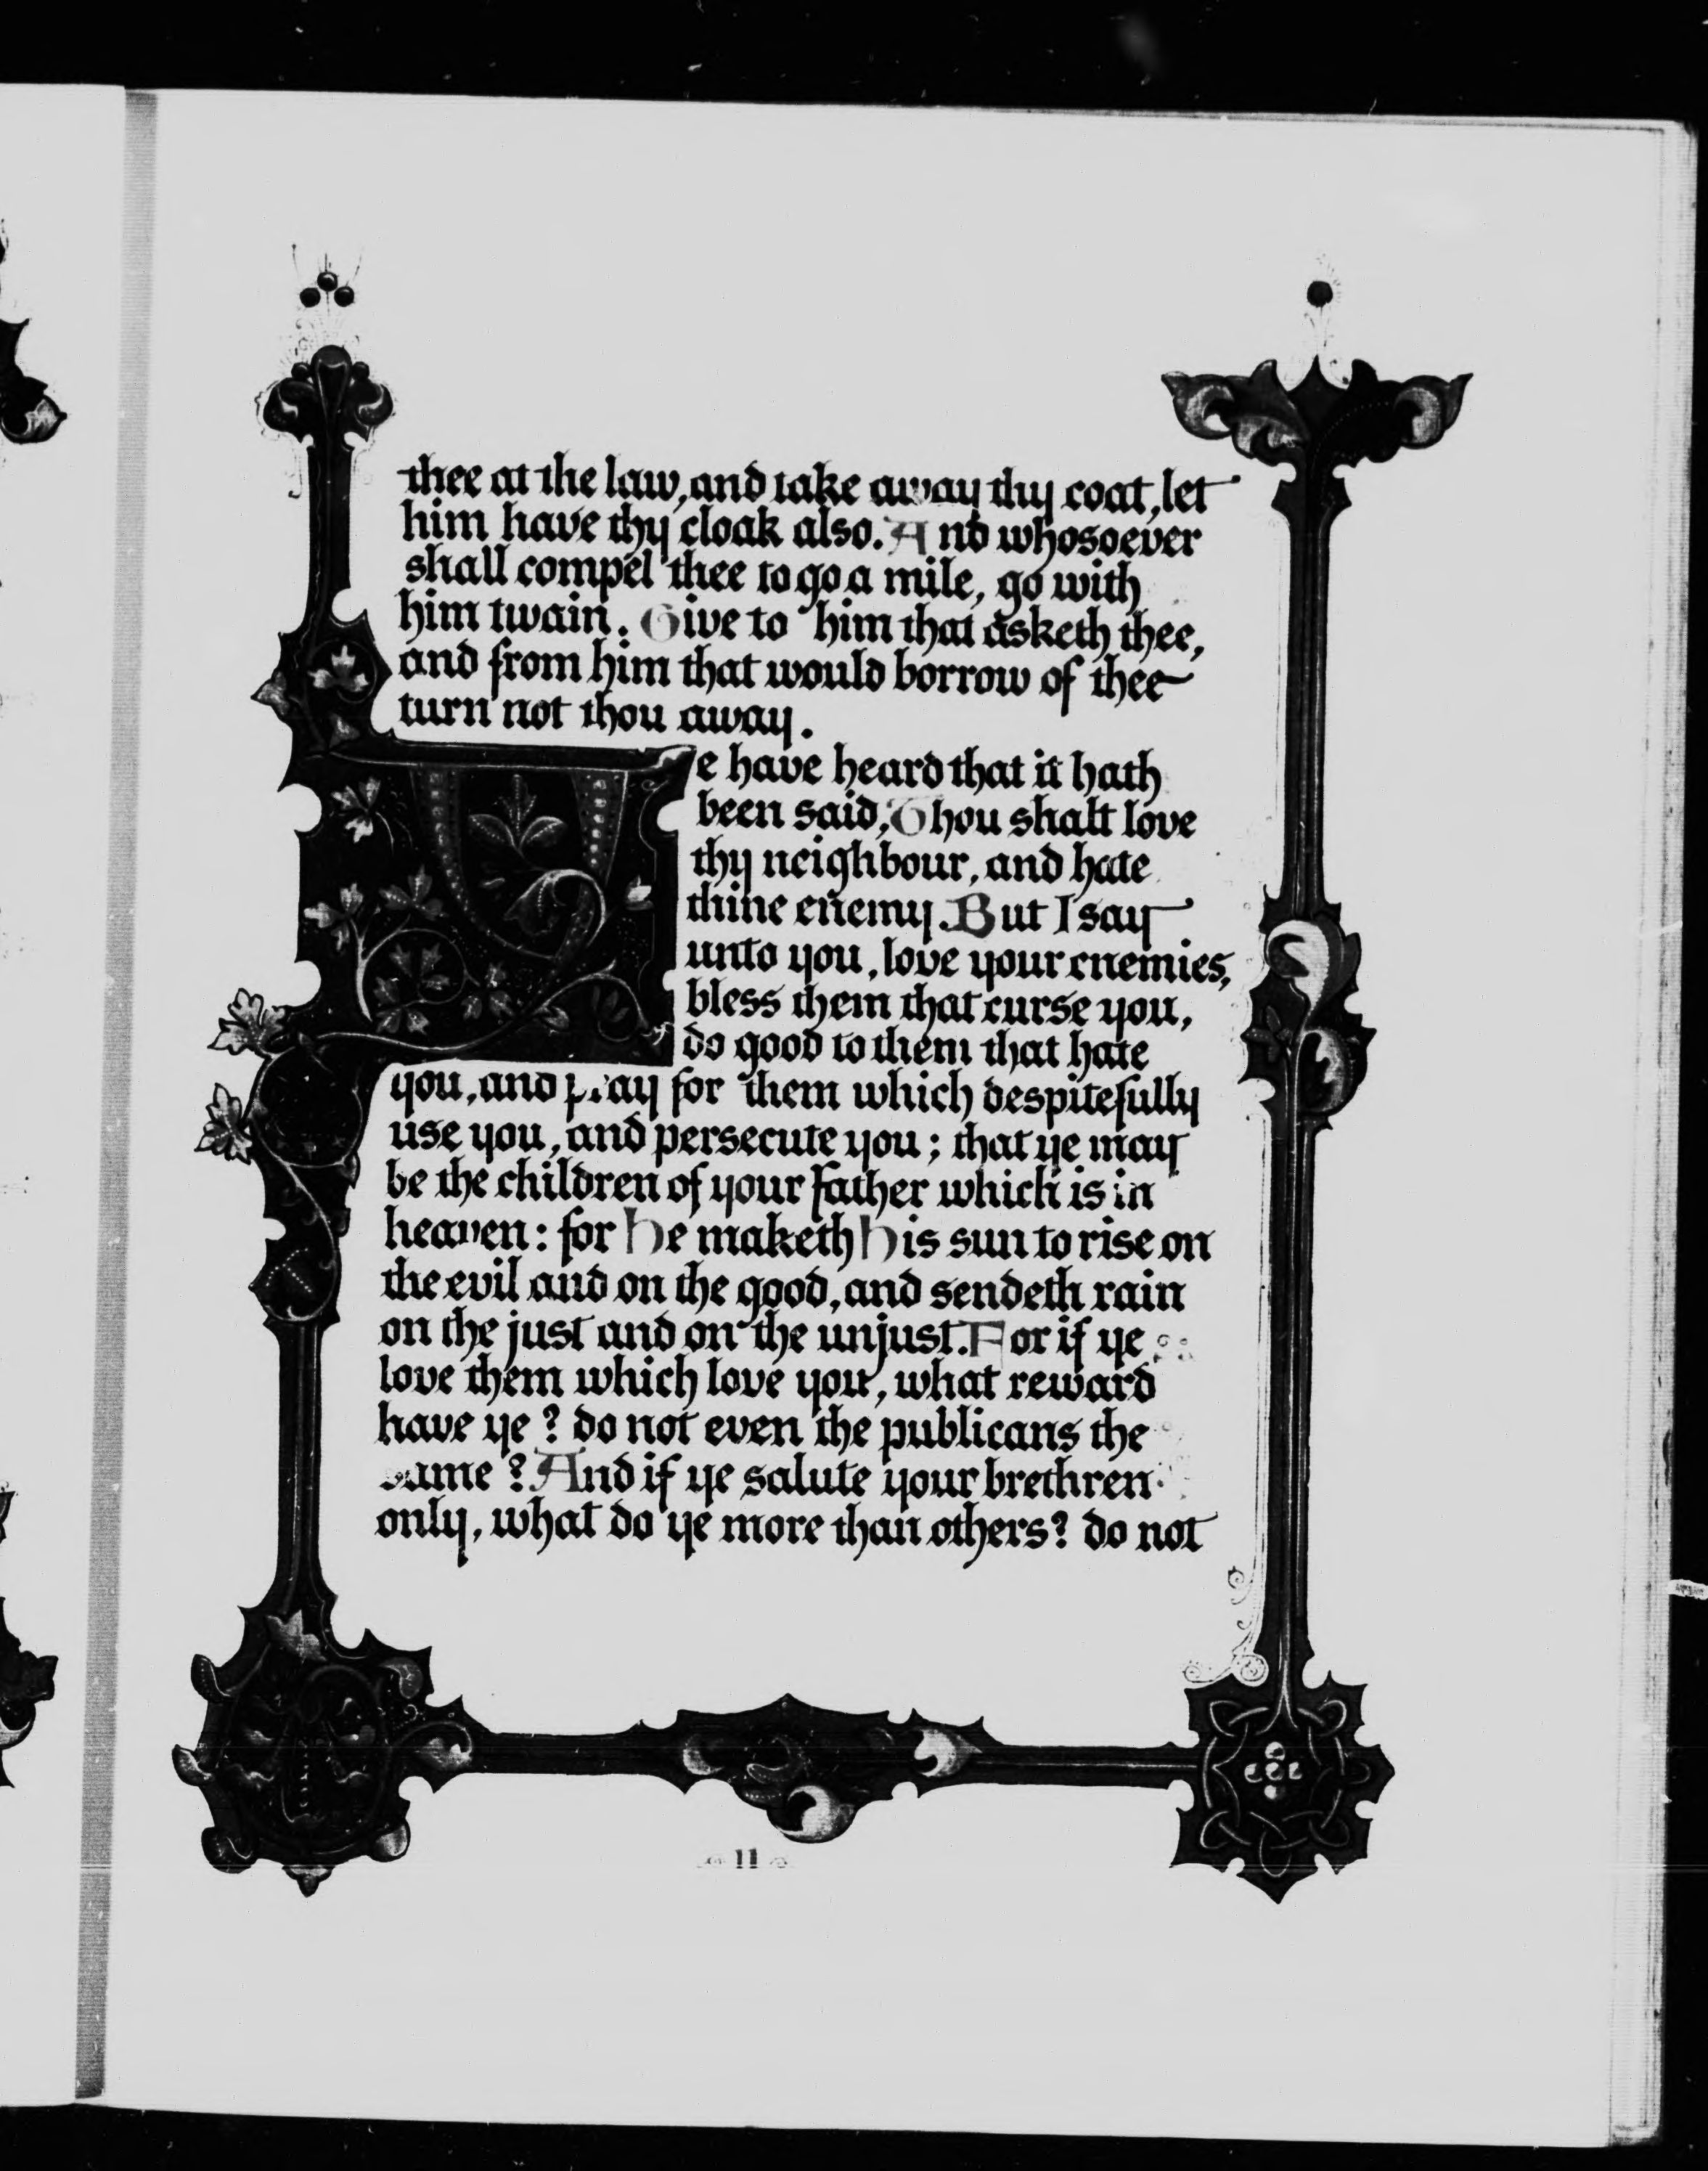 thee at the law, and take away thy coat, let
him have thy cloak also. And whosoever
shall compel thee to go a mile, go with
him twain. Give to him that asketh thee,
and from him that would borrow of thee
turn not thou away.
Ye have heard that it hath
been said, Thou shalt love
thy neighbour, and hate
thine enemy. But I say
unto you, love your enemies,
bless them that curse you,
do good to them that hate
you, and pray for them which despitefully
use you, and persecute you; that ye may
be the children of your Father which is in
heaven: for He maketh His sun to rise on
the evil and on the good, and sendeth rain
on the just and on the unjust. For if ye
love them which love you, what reward
have ye? do not even the publicans the
same? And if ye salute your brethren
only, what do ye more than others? do not
11